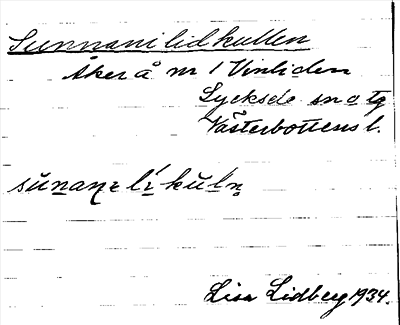 Sunnanilidkullen
Åker å nr 1 Vinliden
Lycksele sn o tg
Västerbottens l.
sŭnanɛ lí kŭln̥
Lisa Lidberg 1934.